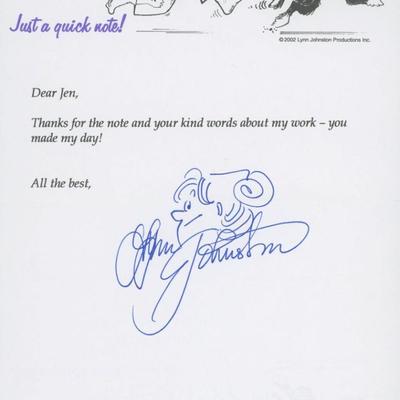 Just a quick note!
©2002 Lynn Johnston Productions Inc.
Dear Jen,
Thanks for the note and your kind words about my work – you
made my day!
All the best,
Lynn Johnston